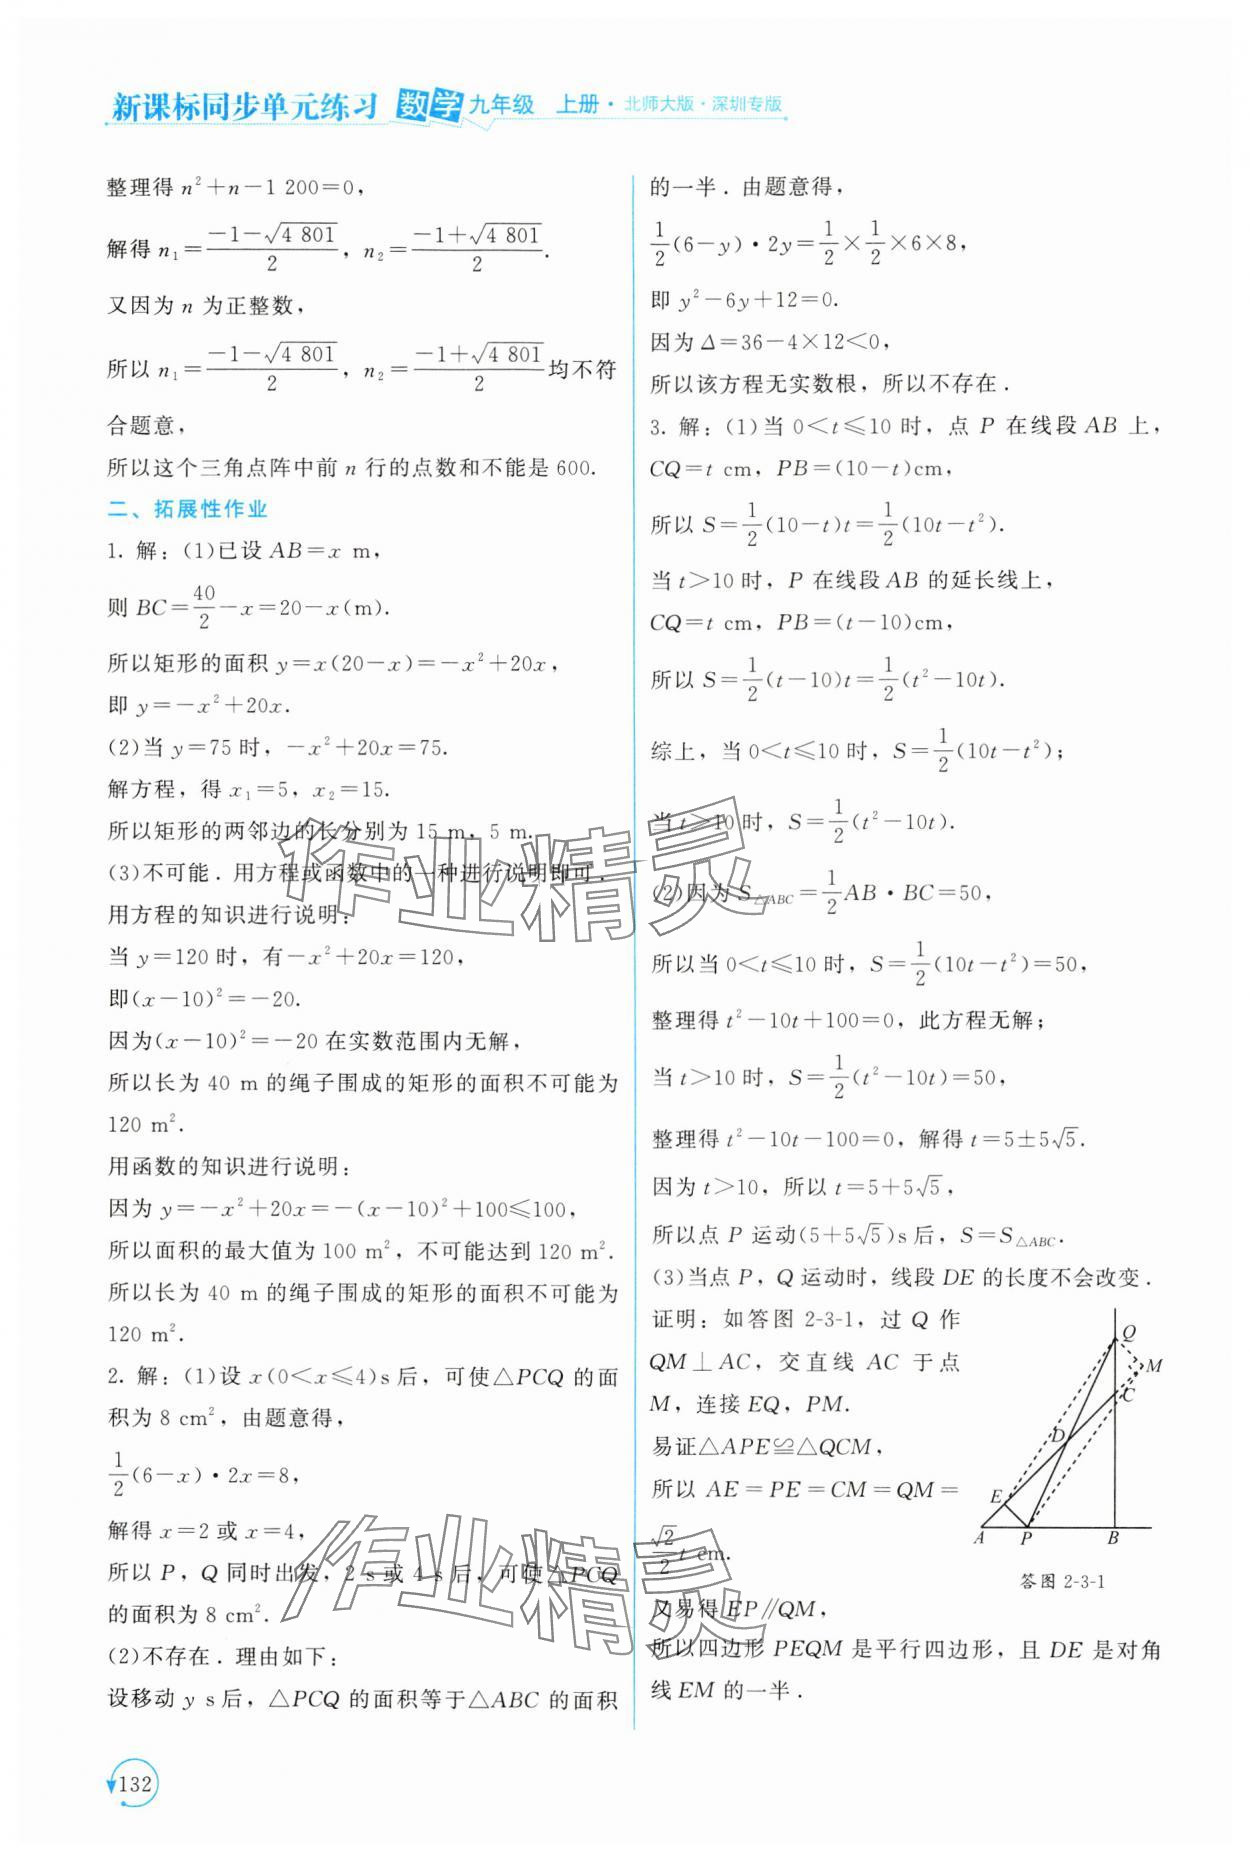 新课标同步单元练习 数学 九年级 上册·北师大版·深圳专版
整理得 n²+n-1 200=0，
解得 n₁=(-1-√4 801)/2，n₂=(-1+√4 801)/2.
又因为 n 为正整数，
所以 n₁=(-1-√4 801)/2，n₂=(-1+√4 801)/2 均不符
合题意，
所以这个三角点阵中前 n 行的点数和不能是 600.
二、拓展性作业
1. 解：(1)已设 AB=x m，
则 BC=40/2-x=20-x(m).
所以矩形的面积 y=x(20-x)=-x²+20x，
即 y=-x²+20x.
(2)当 y=75 时，-x²+20x=75.
解方程，得 x₁=5，x₂=15.
所以矩形的两邻边的长分别为 15 m，5 m.
(3)不可能．用方程或函数中的一种进行说明即可．
用方程的知识进行说明：
当 y=120 时，有-x²+20x=120，
即(x-10)²=-20.
因为(x-10)²=-20 在实数范围内无解，
所以长为 40 m 的绳子围成的矩形的面积不可能为
120 m².
用函数的知识进行说明：
因为 y=-x²+20x=-(x-10)²+100≤100，
所以面积的最大值为 100 m²，不可能达到 120 m².
所以长为 40 m 的绳子围成的矩形的面积不可能为
120 m².
2. 解：(1)设 x(0<x≤4)s 后，可使△PCQ 的面
积为 8 cm²，由题意得，
1/2(6-x)·2x=8，
解得 x=2 或 x=4，
所以 P，Q 同时出发，2 s 或 4 s 后，可使△PCQ
的面积为 8 cm².
(2)不存在．理由如下：
设移动 y s 后，△PCQ 的面积等于△ABC 的面积
的一半．由题意得，
1/2(6-y)·2y=1/2×1/2×6×8，
即 y²-6y+12=0.
因为 Δ=36-4×12<0，
所以该方程无实数根，所以不存在．
3. 解：(1)当 0<t≤10 时，点 P 在线段 AB 上，
CQ=t cm，PB=(10-t)cm，
所以 S=1/2(10-t)t=1/2(10t-t²).
当 t>10 时，P 在线段 AB 的延长线上，
CQ=t cm，PB=(t-10)cm，
所以 S=1/2(t-10)t=1/2(t²-10t).
综上，当 0<t≤10 时，S=1/2(10t-t²)；
当 t>10 时，S=1/2(t²-10t).
(2)因为 S△ABC=1/2AB·BC=50，
所以当 0<t≤10 时，S=1/2(10t-t²)=50，
整理得 t²-10t+100=0，此方程无解；
当 t>10 时，S=1/2(t²-10t)=50，
整理得 t²-10t-100=0，解得 t=5±5√5.
因为 t>10，所以 t=5+5√5，
所以点 P 运动(5+5√5)s 后，S=S△ABC.
(3)当点 P，Q 运动时，线段 DE 的长度不会改变．
证明：如答图 2-3-1，过 Q 作
QM⊥AC，交直线 AC 于点
M，连接 EQ，PM.
易证△APE≌△QCM，
所以 AE=PE=CM=QM=
√2/2 t cm.
又易得 EP∥QM，
所以四边形 PEQM 是平行四边形，且 DE 是对角
线 EM 的一半．
Q
M
C
D
E
A P B
答图 2-3-1
作业精灵
作业精灵
132